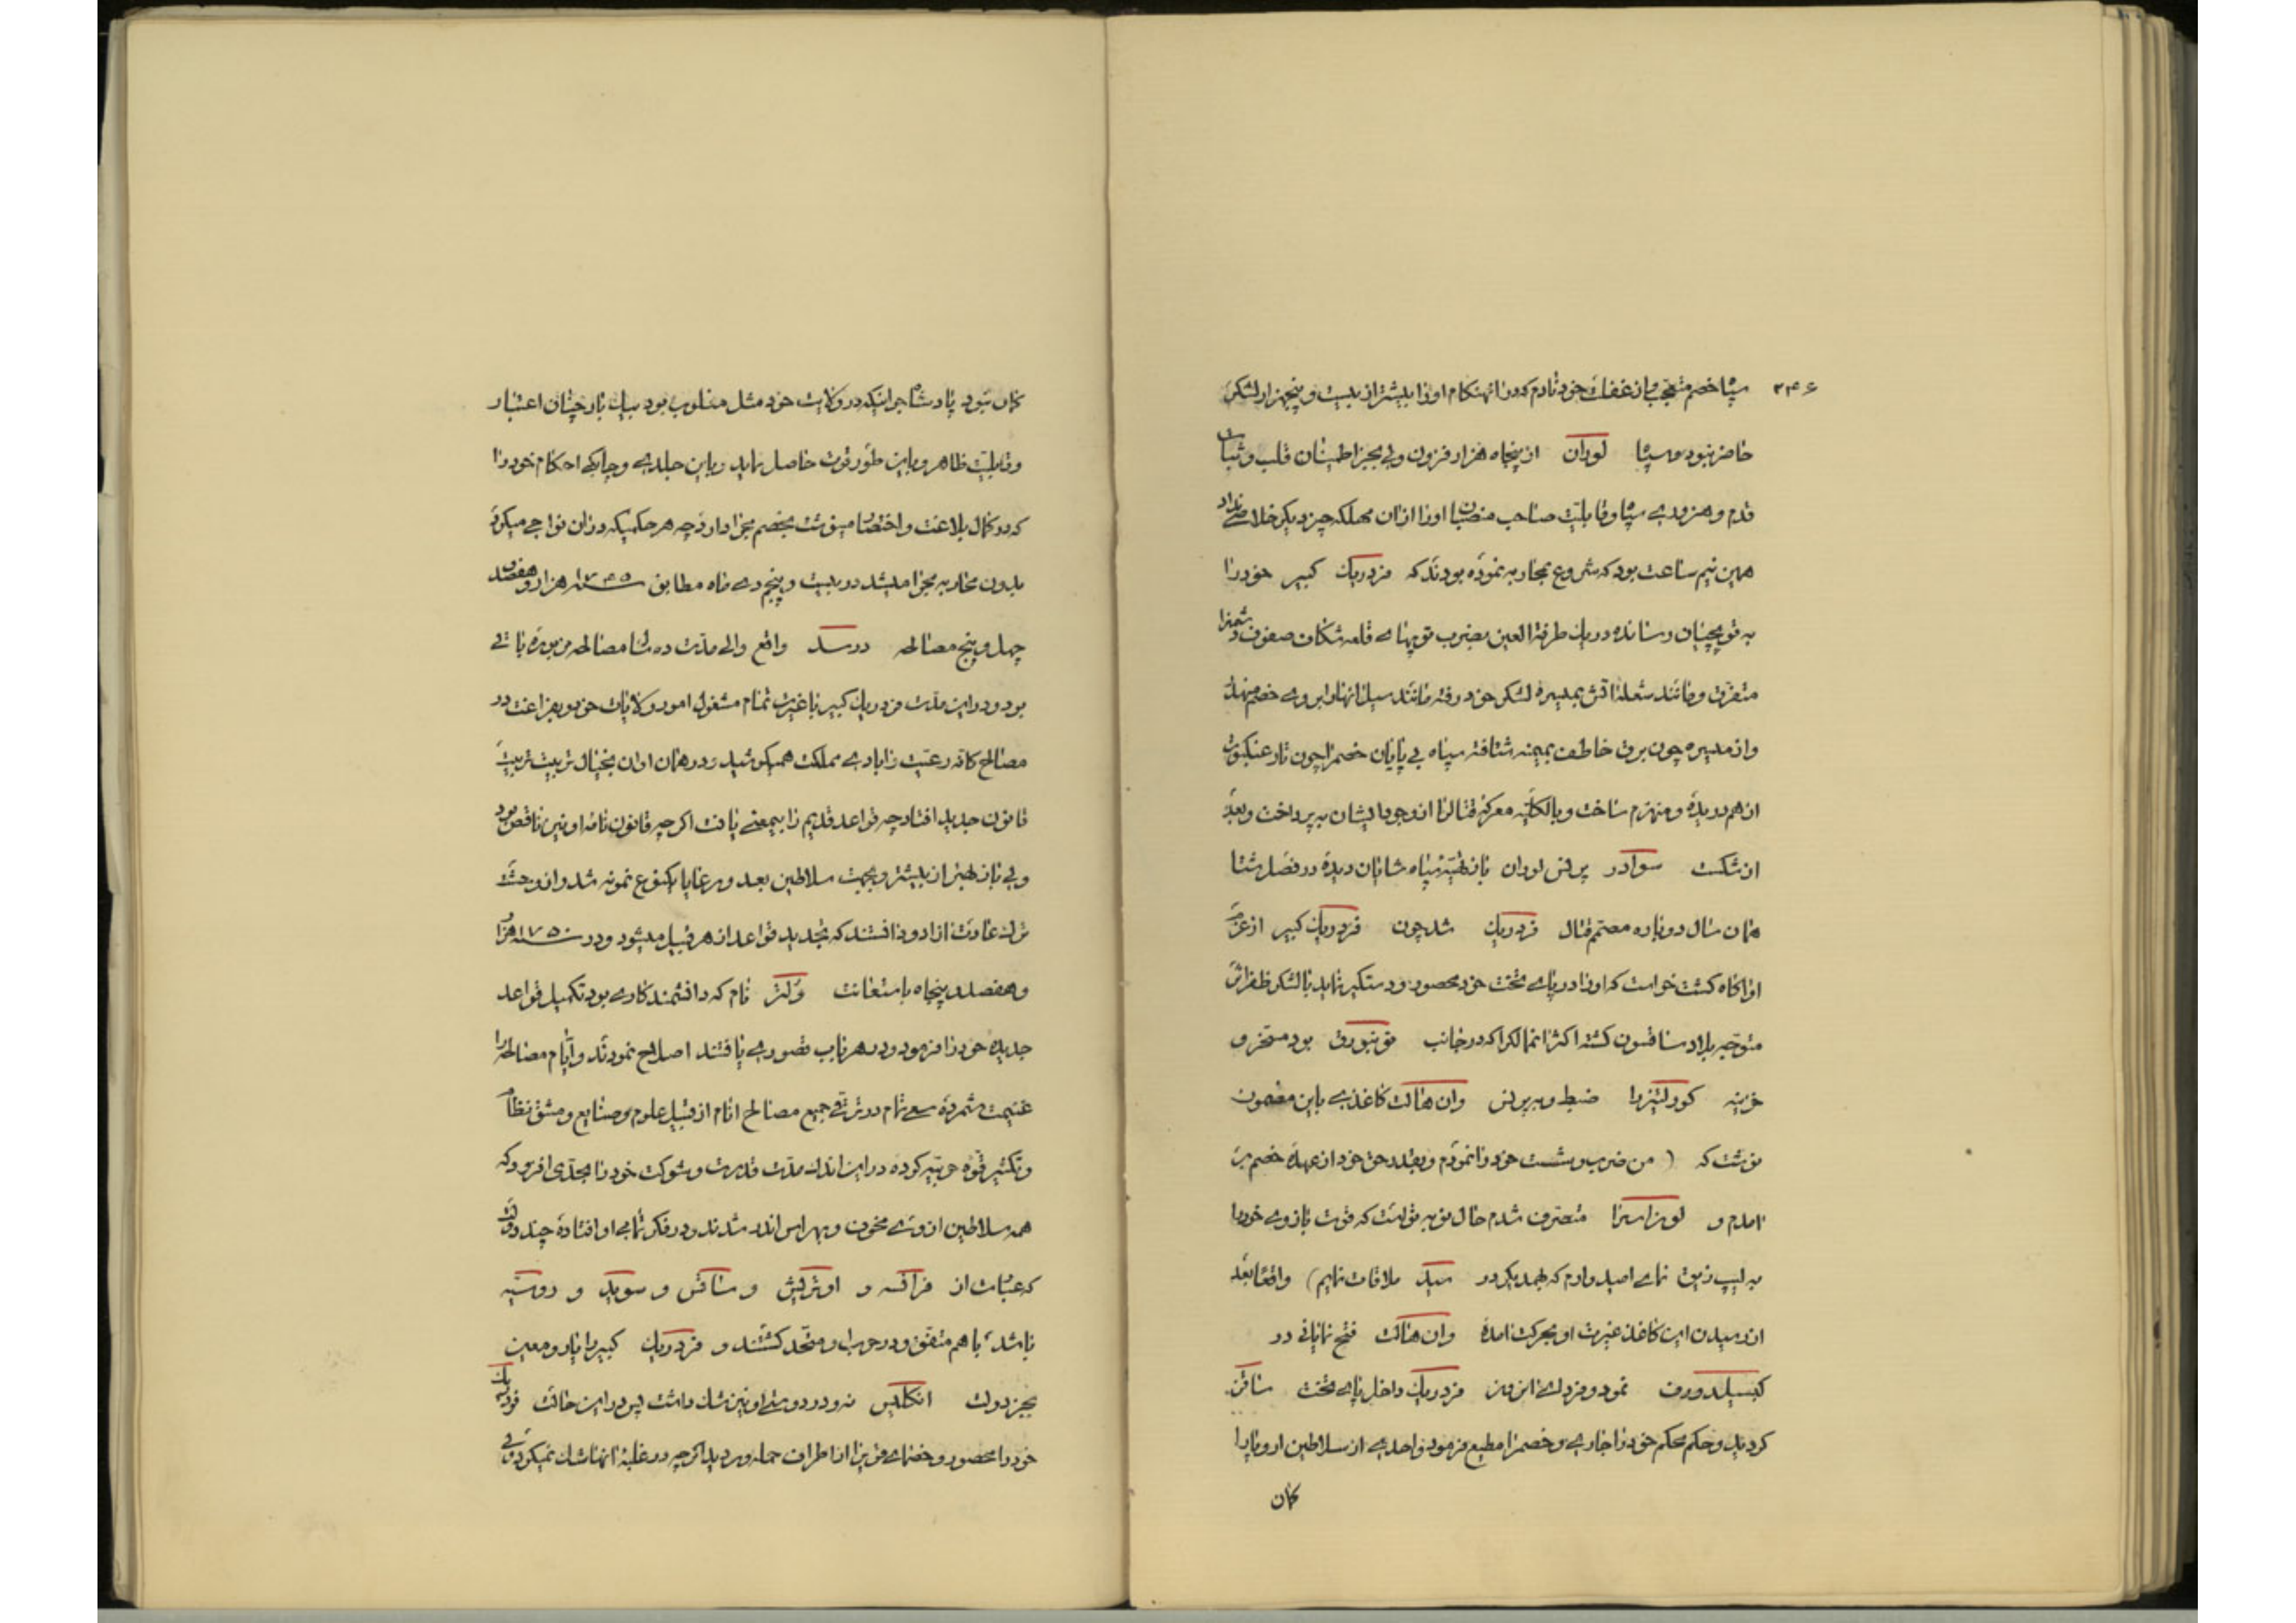 ۲۴۶
سپاه خصم متعجب و از غفلت خود نادم که در آنهنگام او را بیشتر از بیست و پنجهزار لشکری
حاضر نبود و سپاه لوران از پنجاه هزار فزون ولی بجز اطمینان قلب و ثبات
قدم و هنروری سپاه و قابلیت صاحب منصبان او را از آن مهلکه چیز دیگر خلاصی نداد
همین نیم ساعت بود که شروع بمحاربه نموده بودند که فردریک کبیر خود را
به توپچیان رسانده در یک طرفة العین بضرب توپهای قلعه شکان صفوف دشمنرا
متفرق و مانند شعله آتش بمیسره لشکر خود رفته مانند سیل آنها را بروی خصم
و از میسره چون برق خاطف بمیمنه شتافته سپاه بی پایان خصم را چون تار عنکبوت
از هم دریده و منهزم ساخت و بالکلیه معرکه قتال را از وجود ایشان به پرداخت و بعد
از شکست سوادر پرنس لوران باز تهیه سپاه شایان دیده در فصل شتا
همان سال دوباره مصمم قتال فردریک شد چون فردریک کبیر از عزم
او آگاه گشت خواست که او را در پای تخت خود محصور و دستگیر نماید با لشکر ظفر اثر
متوجه بلاد ساقسون گشته اکثر انممالک را که در جانب بود مسخر و
خزینه کورلتیز را ضبط و به پرنس وان هالت کاغذی باین مضمون
نوشت که ( من ضرب و شست خود را نمودم و بقدر حق خود از عهده خصم بر
آمدم و لوزاسرا متصرف شدم حال نوبه تو است که قوت بازوی خود را
به لیپ زیق نمای امیدوارم که بهمدیگر در میلد ملاقات نمایم) واقعا بعد
از رسیدن این کاغذ غیرت او بحرکت آمده وان هالت فتح نمایانی در
کیسیلدورف نمود و فردای آن روز فردریک داخل پای تخت ساقس
گردید و حکم محکم خود را جاری و خصم را مطیع فرمود و احدی از سلاطین اروپا را
گمان
گمان نبود پادشاه جوانیکه در ولایت خود مثل مغلوب بود بیک بار چنان اعتبار
و قابلیت ظاهر و باین طور قوت حاصل نماید و باین جلدی و چابکی احکام خود را
که در کمال بلاغت و اختصار مینوشت بخصم مجرا دارد چه هر حکمیکه در آن نواحی میکرد
بدون محاربه مجرا میشد در بیست و پنجم دی ماه مطابق سنه ۱۷۴۵ هزار و هفصد
چهل و پنج مصالحه درسد واقع و الی مدت ده سال مصالحه مزبوره باقی
بود و در این مدت فردریک کبیر با غیرت تمام مشغول امور ولایات خود و بفراغت در
مصالح کافه رعیت و آبادی مملکت همیکوشید و در همان اوان بخیال تربیت ترتیب
قانون جدید افتاد چه قواعد قدیم را بیمعنی یافت اگرچه قانون نامه او نیز ناقص بود
ولی باز بهتر از بیشتر و بجهت سلاطین بعد و رعایا یکنوع نمونه شد و از وحشت
ترک عادت آزاد و دانستند که تجدید قواعد از هر قبیل میشود و در سنه ۱۷۵۰ هزار
و هفصد و پنجاه باستعانت ولتر نام که دانشمند کاری بود تکمیل قواعد
جدیده خود را فرمود و در هر باب قصوری یافتند اصلاح نمودند و ایام مصالحه را
غنیمت شمرده سعی تمام در ترقی جمیع مصالح انام از قبیل علوم و صنایع و مشق نظام
و تکثیر قوه حربیه کرده در این اندک مدت قدرت و شوکت خود را بحدی افزود که
همه سلاطین از وی مخوف و بهراس اندر شدند و در فکر تباهی او افتاده چند دولت
که عبارت از فرانسه و اوتریش و ساقس و سوید و روسیه
باشد، با هم متفق و در حرب او متحد گشتند و فردریک کبیر را یار و معین
بجز دولت انگلیس نبود و در دوستی او نیز شک داشت پس در این حالت فردریک
خود را محصور و خصمای قوی را از اطراف حمله ور دید اگرچه در غلبه آنها شک نمیکرد ولی